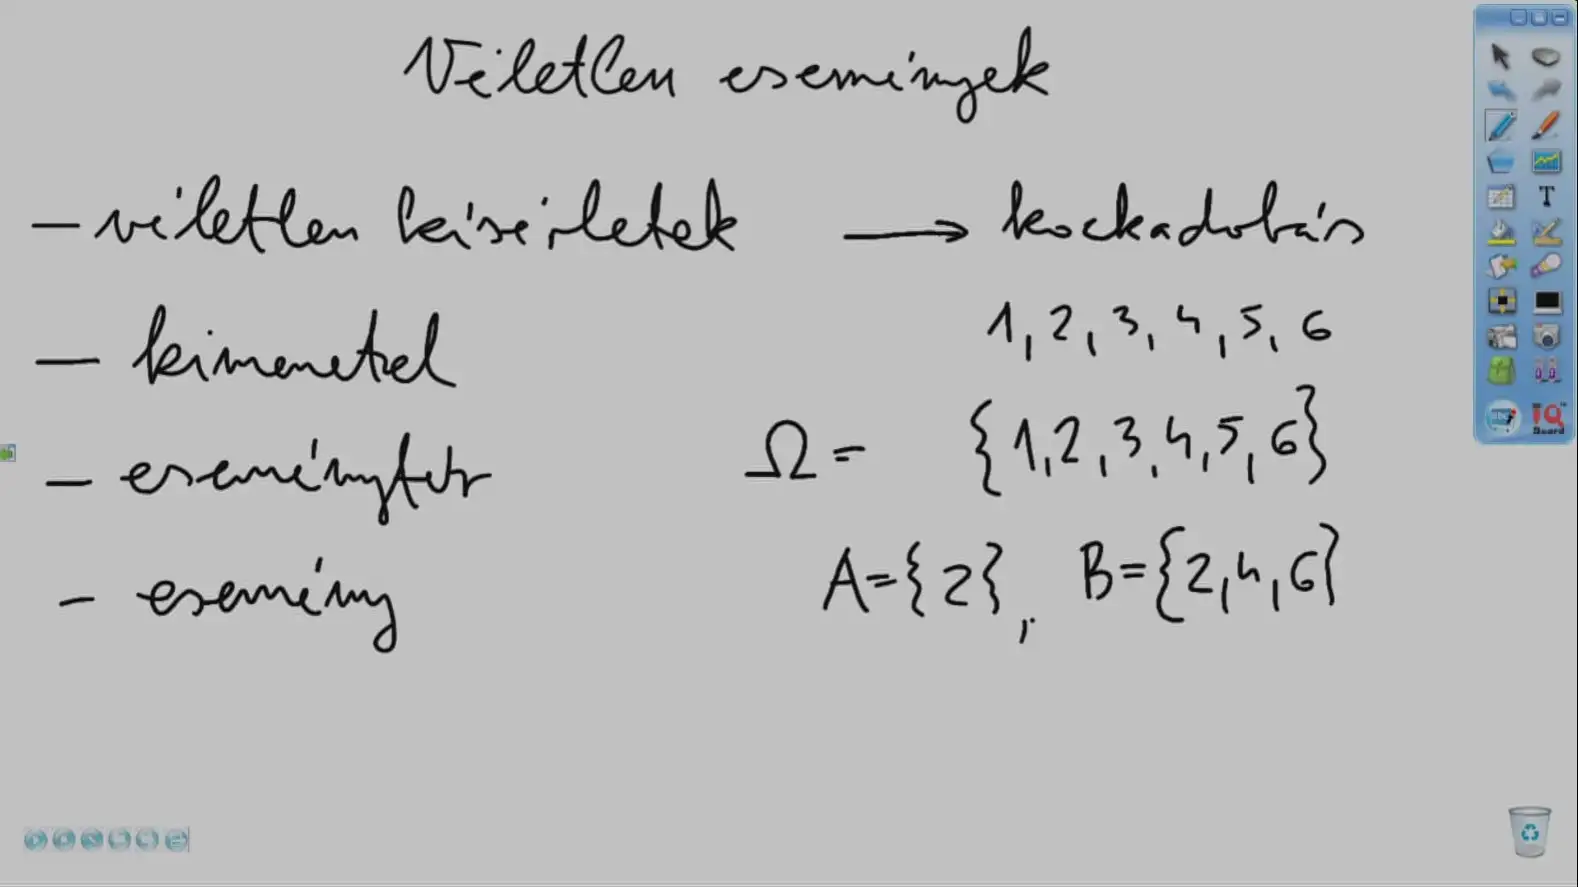 Véletlen események
– véletlen kísérletek → kockadobás
– kimenetel 1, 2, 3, 4, 5, 6
– eseménytér Ω = {1, 2, 3, 4, 5, 6}
– esemény A = {2}, B = {2, 4, 6}
T
IQ
Board